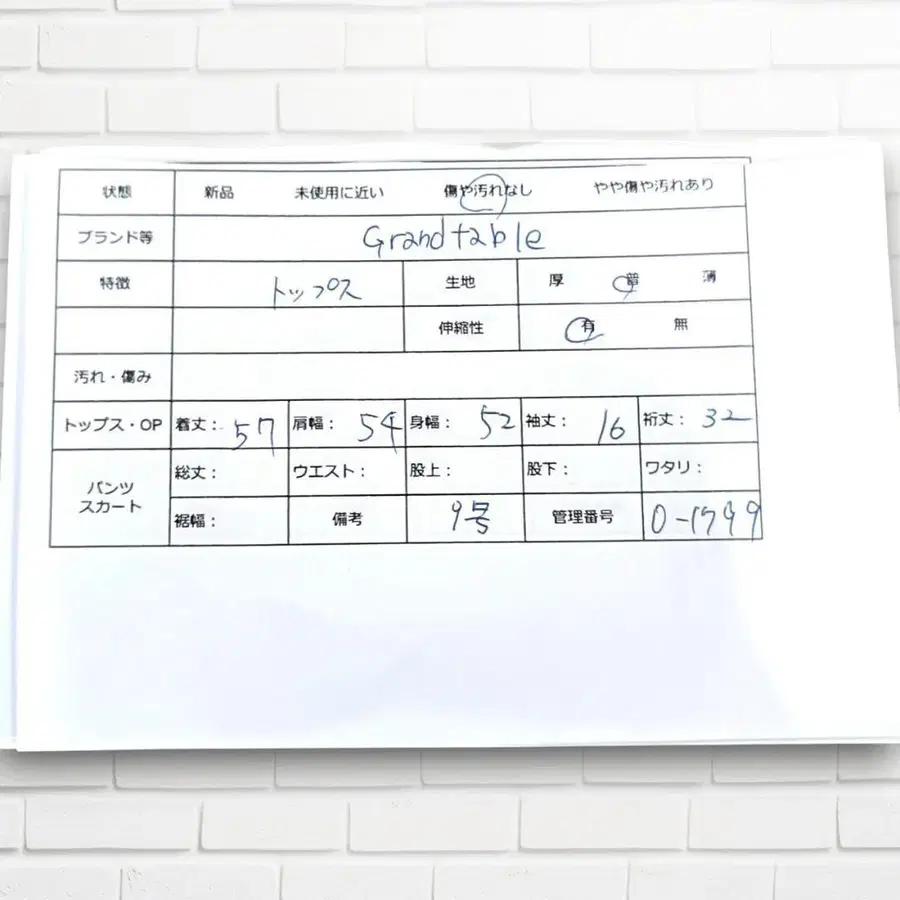 状態 新品 未使用に近い 傷や汚れなし やや傷や汚れあり
ブランド等 Grandtable
特徴 トップス 生地 厚 普 薄
伸縮性 有 無
汚れ・傷み
トップス・OP 着丈: 57 肩幅: 54 身幅: 52 袖丈: 16 裄丈: 32
パンツ
スカート
総丈: ウエスト: 股上: 股下: ワタリ:
裾幅: 備考 9号 管理番号 0-1799